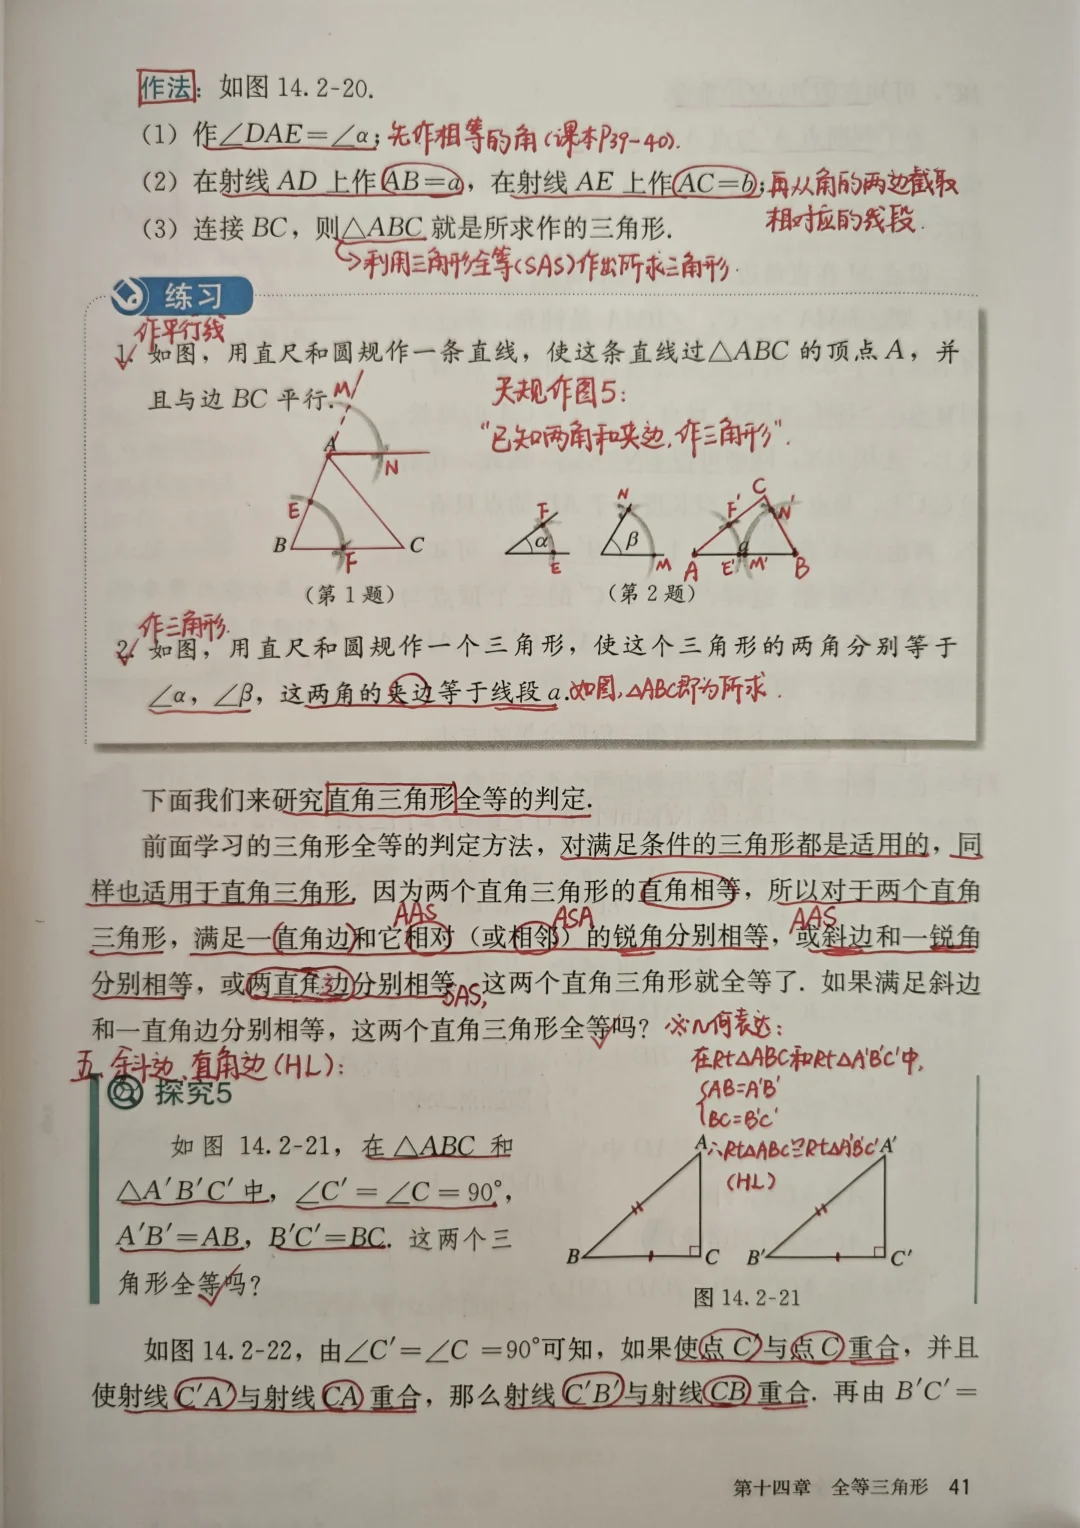 作法：如图 14.2-20.
（1）作∠DAE=∠α；先作相等的角(课本P39-40).
（2）在射线 AD 上作 AB=a，在射线 AE 上作 AC=b；再从角的两边截取
相对应的线段.
（3）连接 BC，则△ABC 就是所求作的三角形.
利用三角形全等(SAS)作出所求三角形.
练习
作平行线
1. 如图，用直尺和圆规作一条直线，使这条直线过△ABC 的顶点 A，并
且与边 BC 平行.
尺规作图5：
“已知两角和夹边，作三角形”.
M
A
N
E
B
F
C
F
α
E
N
β
M
C
F′
N′
a
A
E′
M′
B
（第 1 题）
（第 2 题）
作三角形.
2. 如图，用直尺和圆规作一个三角形，使这个三角形的两角分别等于
∠α，∠β，这两角的夹边等于线段 a.如图，△ABC即为所求.
下面我们来研究直角三角形全等的判定.
前面学习的三角形全等的判定方法，对满足条件的三角形都是适用的，同
样也适用于直角三角形. 因为两个直角三角形的直角相等，所以对于两个直角
AAS ASA AAS
三角形，满足一直角边和它相对（或相邻）的锐角分别相等，或斜边和一锐角
分别相等，或两直角边分别相等，这两个直角三角形就全等了. 如果满足斜边
SAS,
和一直角边分别相等，这两个直角三角形全等吗？ ※几何表达：
五、斜边、直角边(HL)：
在Rt△ABC和Rt△A′B′C′中，
AB=A′B′
BC=B′C′
∴Rt△ABC≌Rt△A′B′C′
(HL)
探究5
如图 14.2-21，在△ABC 和
△A′B′C′中，∠C′=∠C=90°，
A′B′=AB，B′C′=BC. 这两个三
角形全等吗？
A
B
C
A′
B′
C′
图 14.2-21
如图 14.2-22，由∠C′=∠C=90°可知，如果使点 C′与点 C 重合，并且
使射线 C′A′与射线 CA 重合，那么射线 C′B′与射线 CB 重合. 再由 B′C′=
第十四章 全等三角形 41